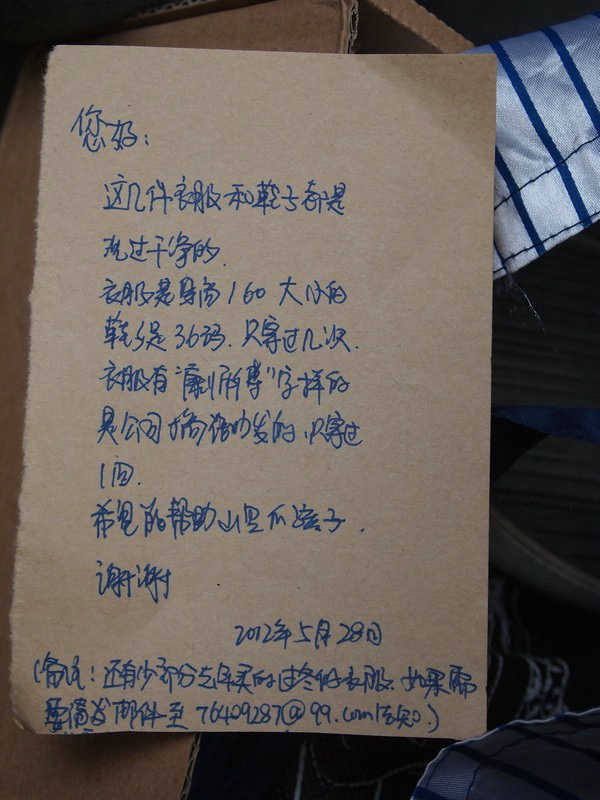 您好：
这几件衣服和鞋子都是
洗过干净的.
衣服是身高160大小的
鞋子是36码.只穿过几次.
衣服有"所尊"字样的
是公司搞活动发的,只穿过
1回.
希望能帮助山里的孩子.
谢谢
2012年5月28日
(备注：还有少部分去年买的过冬的衣服.如果需
要请发邮件至 76409287@qq.com告知.)